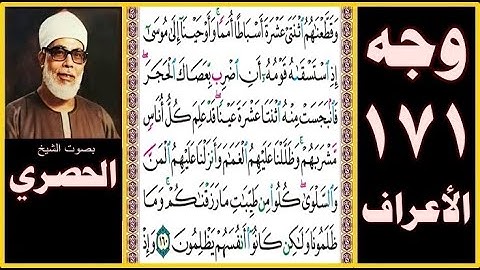 وجه
١٧١
الأعراف
وَقَطَّعْنَٰهُمُ ٱثْنَتَىْ عَشْرَةَ أَسْبَاطًا أُمَمًا ۚ وَأَوْحَيْنَآ إِلَىٰ مُوسَىٰٓ
إِذِ ٱسْتَسْقَىٰهُ قَوْمُهُۥٓ أَنِ ٱضْرِب بِّعَصَاكَ ٱلْحَجَرَ ۖ
فَٱنۢبَجَسَتْ مِنْهُ ٱثْنَتَا عَشْرَةَ عَيْنًا ۖ قَدْ عَلِمَ كُلُّ أُنَاسٍ
مَّشْرَبَهُمْ ۚ وَظَلَّلْنَا عَلَيْهِمُ ٱلْغَمَٰمَ وَأَنزَلْنَا عَلَيْهِمُ ٱلْمَنَّ
وَٱلسَّلْوَىٰ ۖ كُلُوا۟ مِن طَيِّبَٰتِ مَا رَزَقْنَٰكُمْ ۚ وَمَا
ظَلَمُونَا وَلَٰكِن كَانُوٓا۟ أَنفُسَهُمْ يَظْلِمُونَ ١٦٠ وَإِذْ
بصوت الشيخ
الحصري